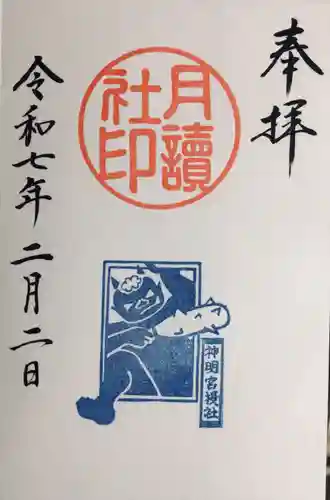 奉拝
月讀
社印
神明宮摂社
令和七年二月二日